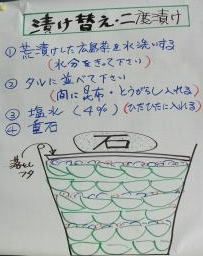 漬け替え・二度漬け
① 荒漬けした広島菜を水洗いする
(水分をきって下さい)
② タルに並べて下さい
(間に昆布・とうがらし入れる)
③ 塩水(4%)(ひたひたに入れる)
④ 重石
石
落とし
フタ